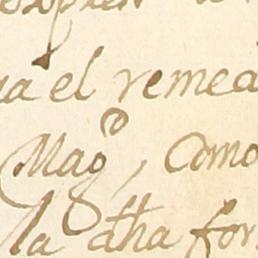 a el remed
Mag.º, Como
la dha for